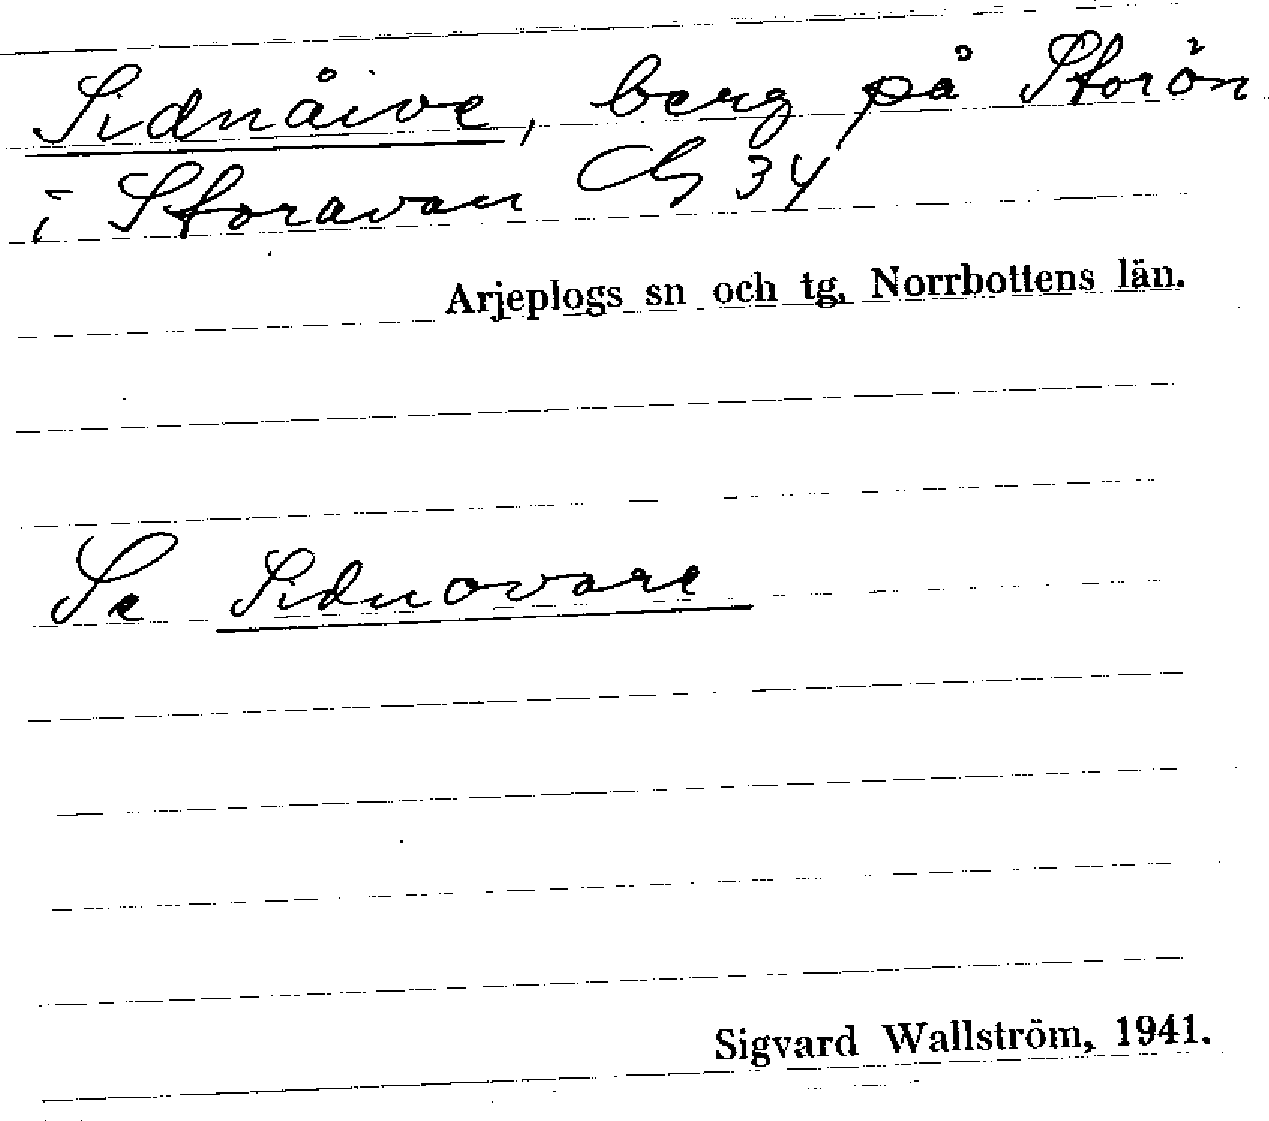 Sidnåive, berg på Storön
i Storavan Ch 34
Arjeplogs sn och tg, Norrbottens län.
Se Sidnovare
Sigvard Wallström, 1941.